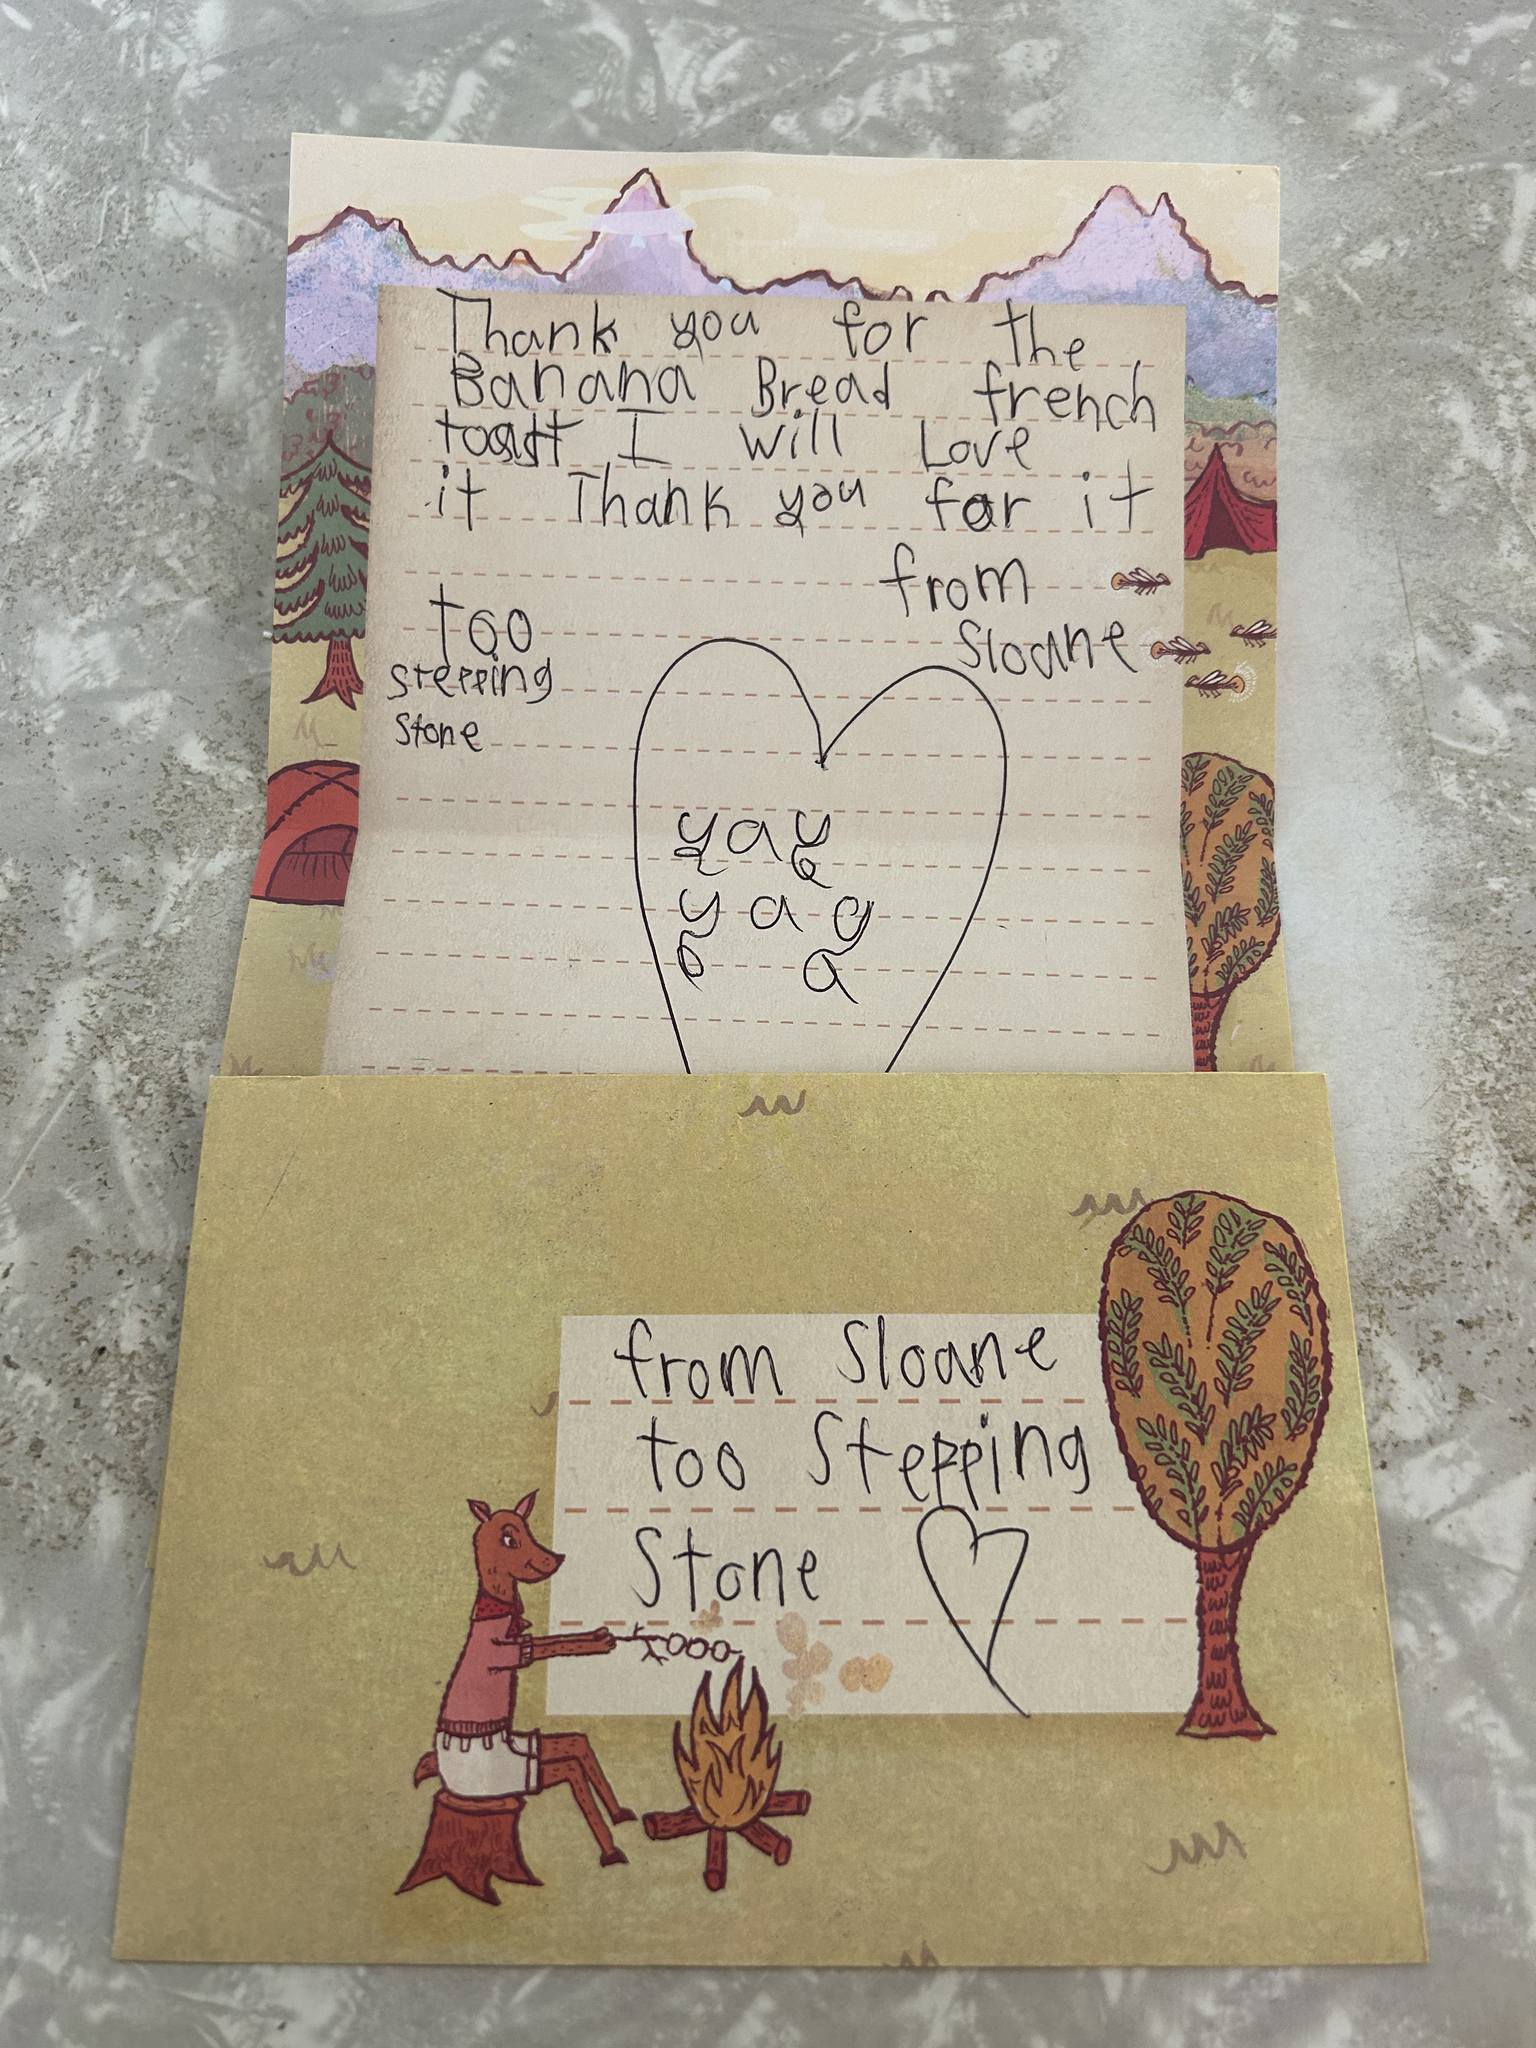 Thank you for the
Banana Bread french
toast I will Love
it Thank you for it
from
Sloane
too
stepping
stone
yay
yay
from Sloane
too Stepping
Stone